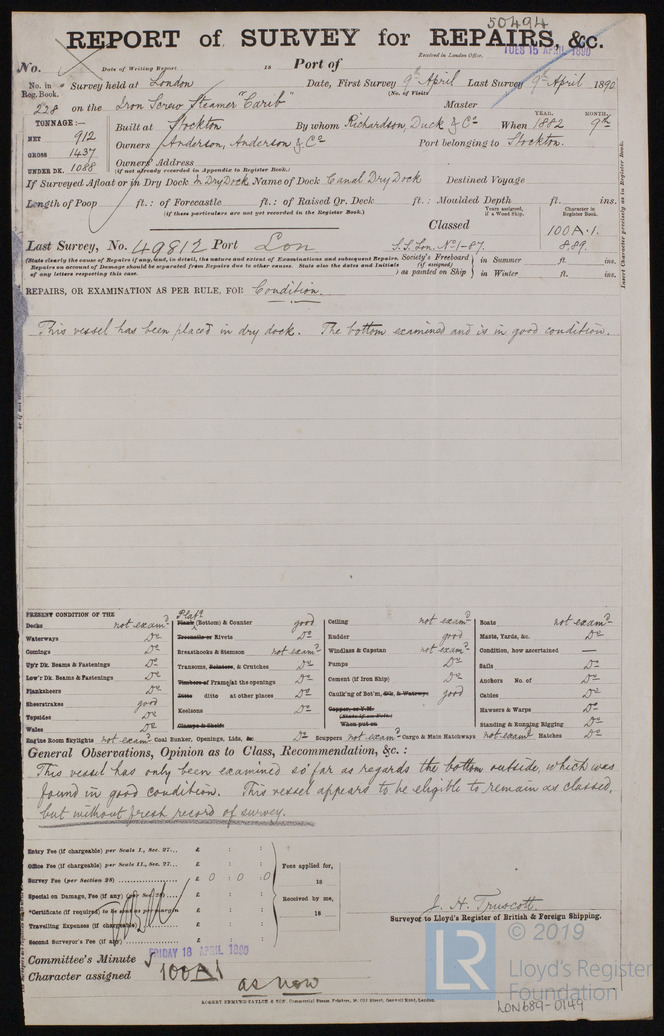 50494
REPORT of SURVEY for REPAIRS, &c.
Received in London Office.
TUES 15 APRIL 1890
No. Date of Writing Report 18 Port of
No. in Reg. Book. Survey held at London Date, First Survey 9th April Last Survey 9th April 1890
(No. of Visits)
228 on the Iron Screw Steamer "Carib" Master
TONNAGE:—
NET 912
GROSS 1437
UNDER DK. 1088
Built at Stockton By whom Richardson, Duck & Co When 1882 9th
YEAR. MONTH.
Owners Anderson, Anderson & Co Port belonging to Stockton.
Owners' Address
(if not already recorded in Appendix to Register Book.)
If Surveyed Afloat or in Dry Dock In Dry Dock Name of Dock Canal Dry Dock Destined Voyage
Length of Poop ft.: of Forecastle ft.: of Raised Qr. Deck ft.: Moulded Depth ft. ins.
(if these particulars are not yet recorded in the Register Book.)
Years assigned, if a Wood Ship.
Character in Register Book.
Classed 100A.1.
Last Survey, No. 49812 Port Lon S.S. Lon. No 1-87. 8.89.
(State clearly the cause of Repairs if any, and, in detail, the nature and extent of Examinations and subsequent Repairs.
Repairs on account of Damage should be separated from Repairs due to other causes. State also the dates and Initials
of any letters respecting this case.
Society's Freeboard (if assigned) as painted on Ship
in Summer ft. ins.
in Winter ft. ins.
Insert Character precisely as in Register Book.
REPAIRS, OR EXAMINATION AS PER RULE, FOR Condition.
This vessel has been placed in dry dock. The bottom examined and is in good condition.
PRESENT CONDITION OF THE
Decks not examd
Waterways Do
Comings Do
Up'r Dk. Beams & Fastenings Do
Low'r Dk. Beams & Fastenings Do
Planksheers Do
Sheerstrakes good
Topsides Do
Wales Do
Engine Room Skylights not examd
Platg
Plank (Bottom) & Counter good
Treenails or Rivets Do
Breasthooks & Stemson not examd
Transoms, Pointers, & Crutches Do
Timbers of Frame at the openings Do
Ditto ditto at other places Do
Keelsons Do
Clamps & Shelfs
Coal Bunker, Openings, Lids, &c. Do
Ceiling not examd
Rudder good
Windlass & Capstan not examd
Pumps Do
Cement (if Iron Ship) Do
Caulk'ng of Bot'm, Dk, & Waterways good
Copper, or Y.M.
(State if on Felt)
When put on
Scuppers not examd Cargo & Main Hatchways not examd
Boats not examd
Masts, Yards, &c. Do
Condition, how ascertained —
Sails Do
Anchors No. of Do
Cables Do
Hawsers & Warps Do
Standing & Running Rigging Do
Hatches Do
General Observations, Opinion as to Class, Recommendation, &c.:
This vessel has only been examined so far as regards the bottom outside, which was
found in good condition. This vessel appears to be eligible to remain as classed,
but without fresh record of survey.
Entry Fee (if chargeable) per Scale I., Sec. 27... £ : :
Office Fee (if chargeable) per Scale II., Sec. 27... £ : :
Survey Fee (per Section 28) £ 0 : 0 : 0
Special on Damage, Fee (if any) (per Sec. 28) £ : :
*Certificate (if required) to be sent as per margin £ : :
Travelling Expenses (if chargeable) £ : :
Second Surveyor's Fee (if any) £ : :
Fees applied for,
18
Received by me,
18
J. H. Truscott
Surveyor to Lloyd's Register of British & Foreign Shipping.
Committee's Minute FRIDAY 18 APRIL 1890
Character assigned 100A1
as now
ROBERT EDMUND TAYLOR & SON, Commercial Steam Printers, 19, Old Street, Goswell Road, London.
© 2019
LR
Lloyd's Register
Foundation
LON689-0149